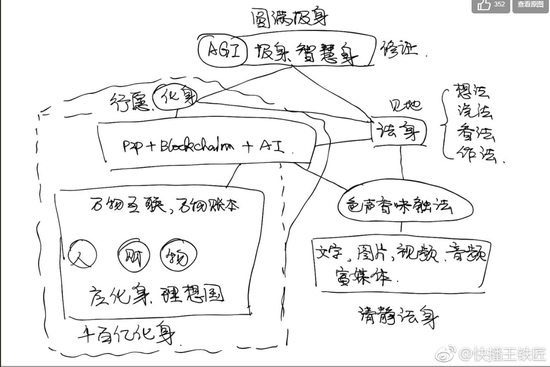 352
查看原图
圆满报身
AGI 报身 智慧身 修证
行愿 化身
见地
法身
想法
说法
看法
作法
P2P+Blockchain+AI
万物互联，万物账本
人 财 物
应化身 理想国
千百亿化身
色声香味触法
文字，图片，视频，音频
富媒体
清静法身
@快播王铁匠